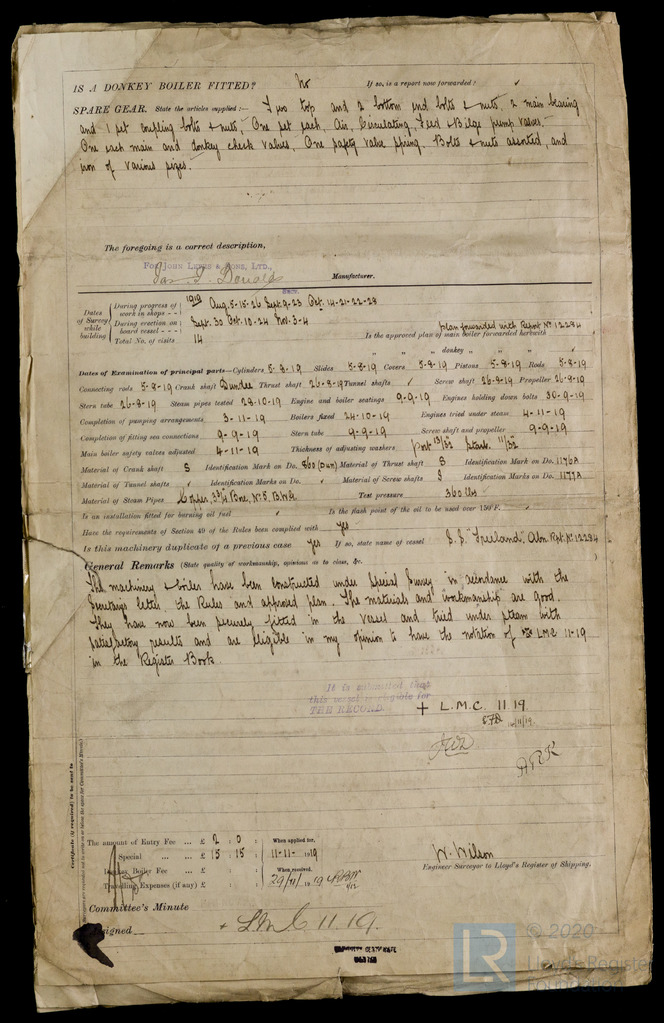 IS A DONKEY BOILER FITTED? No If so, is a report now forwarded? ✓
SPARE GEAR. State the articles supplied:— Two top and 2 bottom end bolts & nuts, 2 main bearing
and 1 set coupling bolts & nuts, One set each, Air, Circulating, Feed & Bilge pump valves.
One each main and donkey check valves, One safety valve spring. Bolts & nuts assorted, and
iron of various sizes.
The foregoing is a correct description,
FOR JOHN LEWIS & SONS, LTD.,
Manufacturer.
Dates of Survey while building
During progress of work in shops - - 1919 Aug. 5-15-26 Sept. 9-23 Oct. 14-21-22-28
During erection on board vessel - - - Sept. 30 Oct. 10-24 Nov. 3-4
Total No. of visits 14
Is the approved plan of main boiler forwarded herewith plan forwarded with Report No 12284
" " donkey " " ✓
Dates of Examination of principal parts—Cylinders 5-8-19 Slides 5-8-19 Covers 5-8-19 Pistons 5-8-19 Rods 5-8-19
Connecting rods 5-8-19 Crank shaft Dundee Thrust shaft 26-8-19 Tunnel shafts ✓ Screw shaft 26-8-19 Propeller 26-8-19
Stern tube 26-8-19 Steam pipes tested 28-10-19 Engine and boiler seatings 9-9-19 Engines holding down bolts 30-9-19
Completion of pumping arrangements 3-11-19 Boilers fixed 24-10-19 Engines tried under steam 4-11-19
Completion of fitting sea connections 9-9-19 Stern tube 9-9-19 Screw shaft and propeller 9-9-19
Main boiler safety valves adjusted 4-11-19 Thickness of adjusting washers Port 13/32 Starb. 11/32
Material of Crank shaft S Identification Mark on Do. 860 (Dun) Material of Thrust shaft S Identification Mark on Do. 1176A
Material of Tunnel shafts ✓ Identification Marks on Do. ✓ Material of Screw shafts S Identification Marks on Do. 1177A
Material of Steam Pipes Copper, 3¾ Bore, No 5. B.W.G Test pressure 360 lbs
Is an installation fitted for burning oil fuel ✓ Is the flash point of the oil to be used over 150°F. ✓
Have the requirements of Section 49 of the Rules been complied with yes
Is this machinery duplicate of a previous case yes If so, state name of vessel Abn. Rpt. No 12284
General Remarks (State quality of workmanship, opinions as to class, &c.
The machinery & boiler have been constructed under Special Survey in accordance with the
Secretary's letter, the Rules and approved plan. The materials and workmanship are good.
They have now been securely fitted in the vessel and tried under steam with
satisfactory results and are eligible in my opinion to have the notation of LMC 11-19
in the Register Book.
It is submitted that
this vessel is eligible for
THE RECORD. + L.M.C. 11.19.
The amount of Entry Fee ... £ 2 : 0 : When applied for,
Special ... ... £ 15 : 15 : 11-11-1919
Donkey Boiler Fee ... ... £ : : When received,
Travelling Expenses (if any) £ : : 29/11/1919
W. Wilson
Engineer Surveyor to Lloyd's Register of Shipping.
Committee's Minute
Assigned + L.M.C. 11.19.
LR
© 2020
Lloyd's Register
Foundation